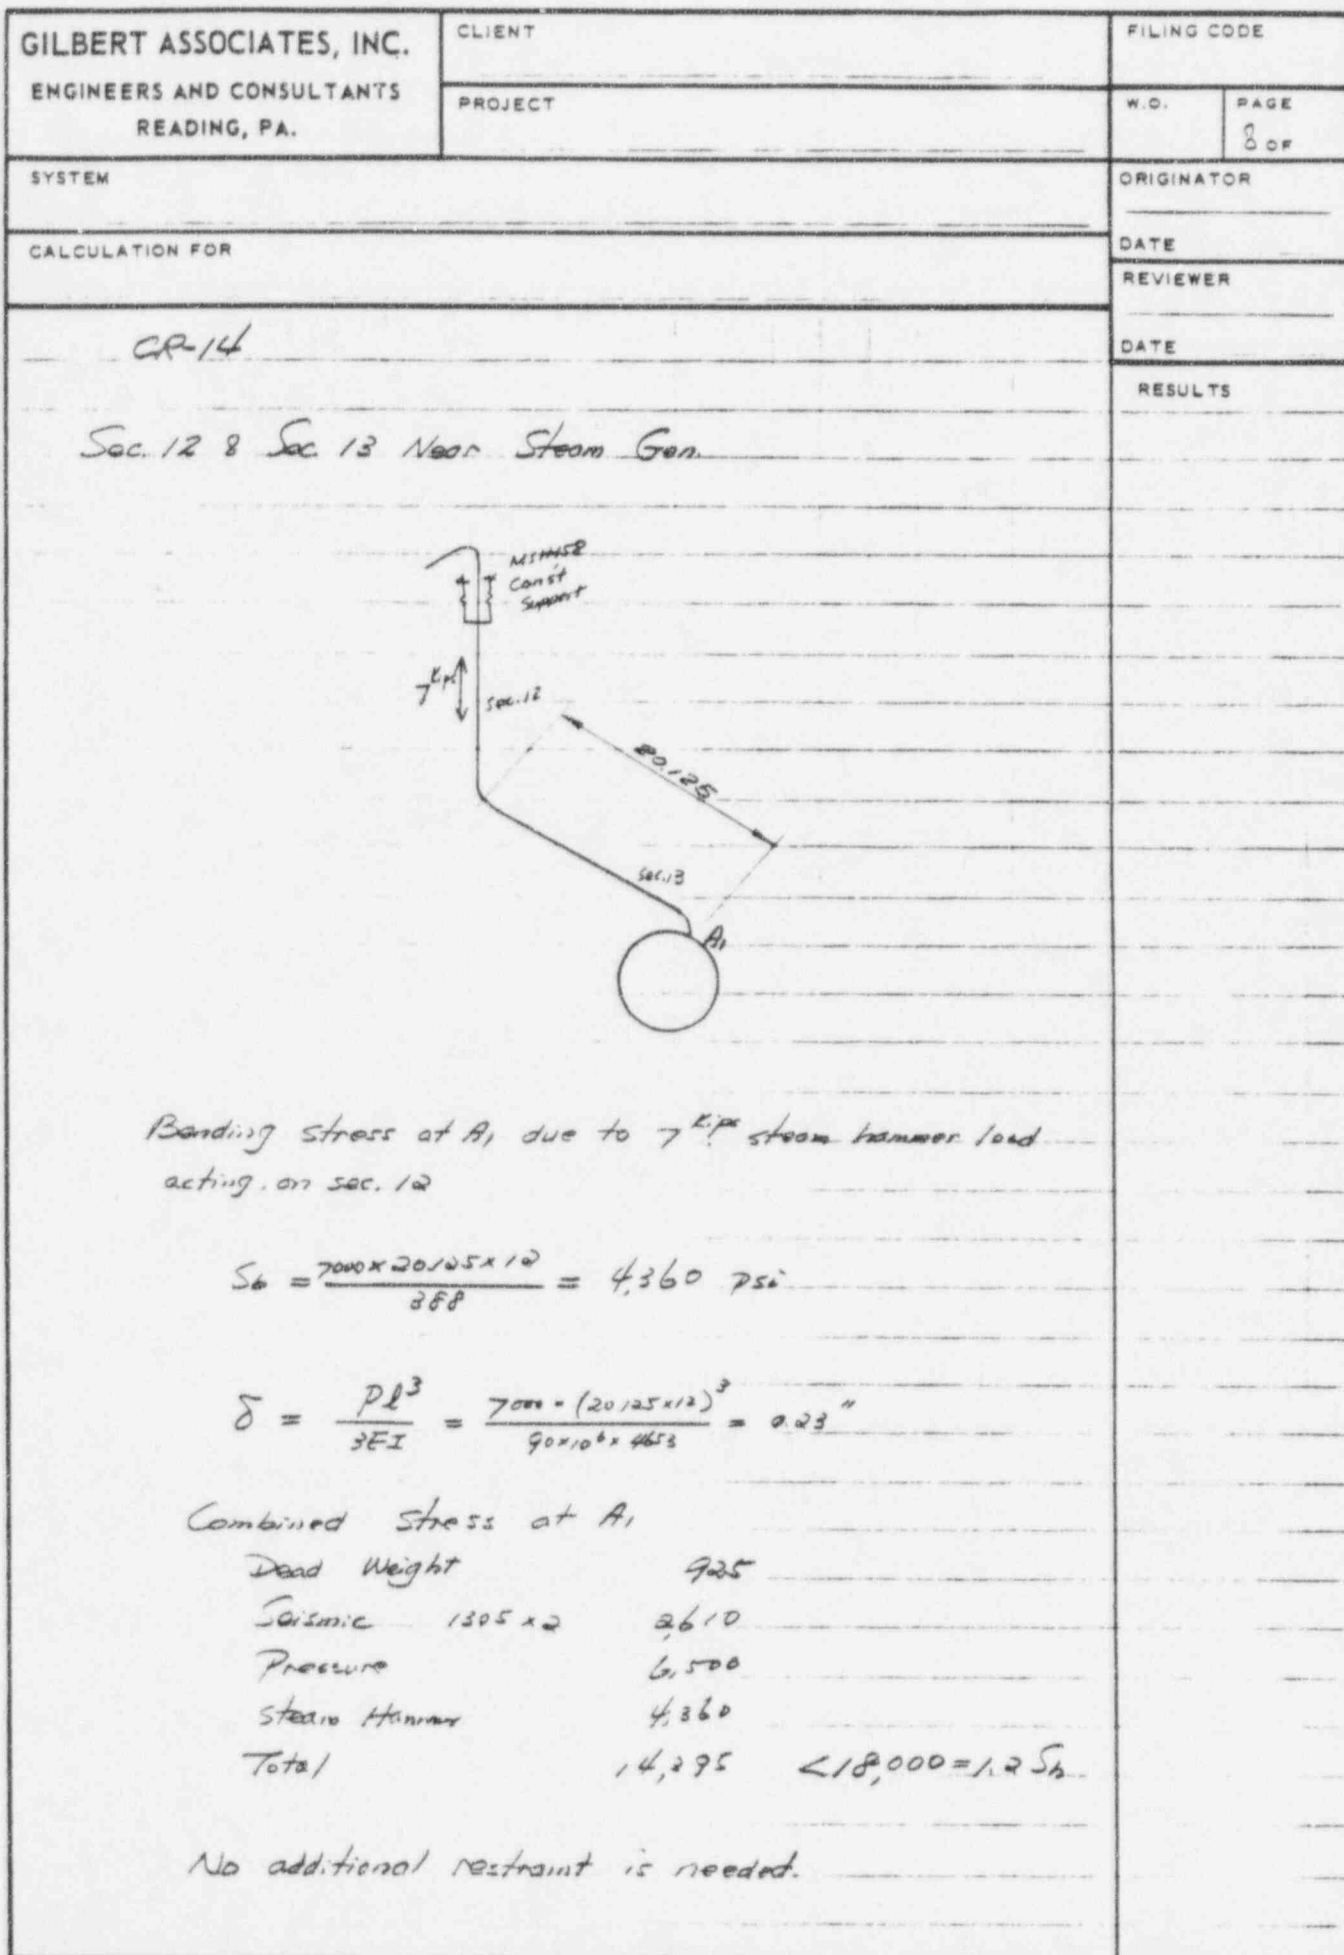 GILBERT ASSOCIATES, INC.
ENGINEERS AND CONSULTANTS
READING, PA.
CLIENT
PROJECT
FILING CODE
W.O.
PAGE
8 OF
SYSTEM
ORIGINATOR
DATE
CALCULATION FOR
REVIEWER
DATE
RESULTS
CR-14
Sec. 12 & Sec. 13 Near Steam Gen.
Const
Support
7 Kips
sec. 12
20.125
sec. 13
A1
Bending stress at A1 due to 7 Kips steam hammer load
acting on sec. 12
Sb = 7000 x 20.125 x 12 / 388 = 4,360 psi
δ = Pl³ / 3EI = 7000 - (20.125 x 12)³ / 90 x 10⁶ x 4653 = 0.23"
Combined Stress at A1
Dead Weight 925
Seismic 1305 x 2 2,610
Pressure 6,500
Steam Hammer 4,360
Total 14,395 < 18,000 = 1.2 Sh
No additional restraint is needed.